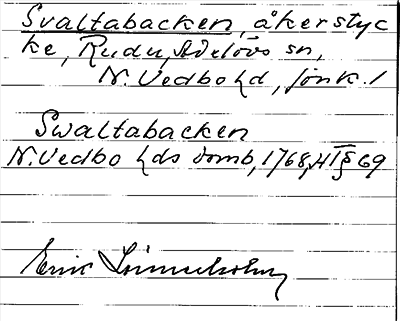 Svaltabacken, åkerstyc
ke, Rudu, Adelövs sn,
N. Vedbo hd, Jönk. l
Swaltabacken
N. Vedbo hds domb, 1768, HT § 69